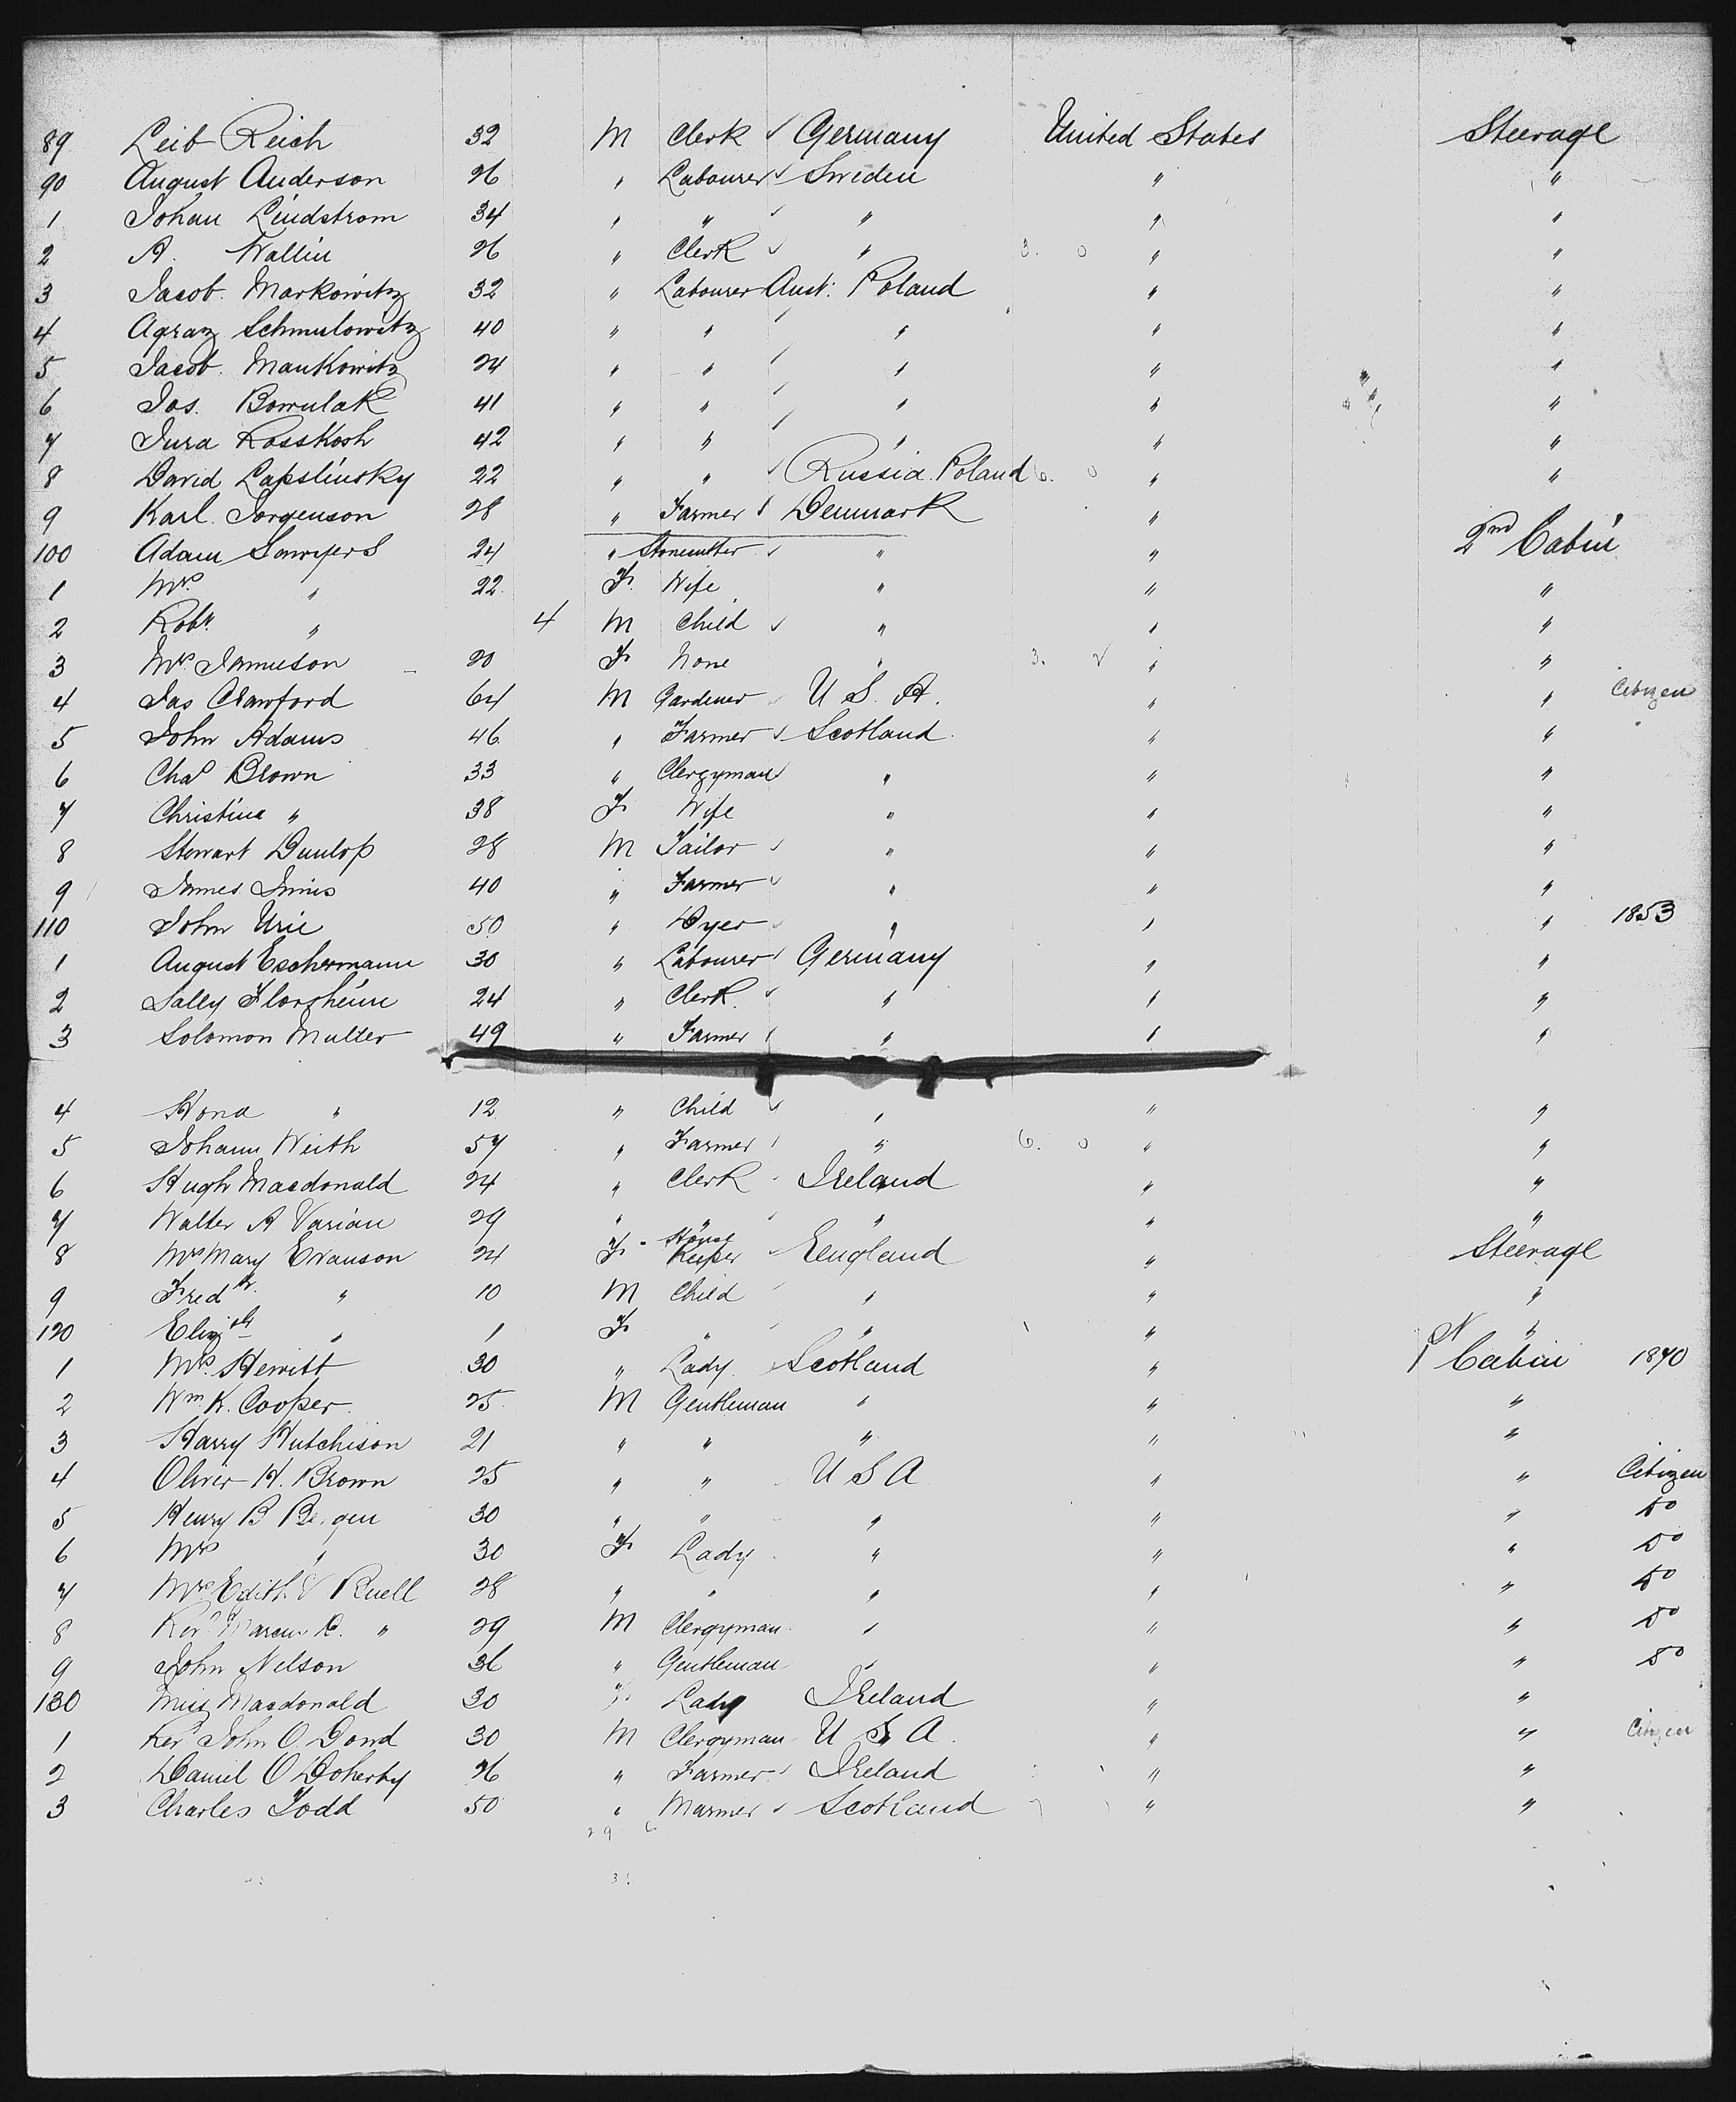 89 Leib Reich 32 M Clerk Germany United States Steerage
90 August Anderson 26 " Labourer Sweden " "
1 Johan Lindstrom 34 " " " " "
2 A. Wallin 26 " Clerk " 3. 0 " "
3 Jacob Markowitz 32 " Labourer Aust: Poland " "
4 Schmulowitz 40 " " " " "
5 Jacob Mankowitz 24 " " " " "
6 Jos. 41 " " " " "
7 Jura Rosskosh 42 " " " " "
8 David Lapslinsky 22 " " Russia Poland 6. 0 " "
9 Karl Jorgenson 28 " Farmer Denmark " "
100 Adam 24 " Stonecutter " " 2nd Cabin
1 Mrs " 22 F. Wife " " "
2 Robt " 4 M Child " " "
3 Mrs Jamieson 20 F None " 3. " "
4 Jas Crawford 64 M Gardener U. S. A. " " Citizen
5 John Adams 46 " Farmer Scotland " "
6 Chas Brown 33 " Clergyman " " "
7 Christina " 38 F Wife " " "
8 Stewart Dunlop 28 M Tailor " " "
9 James Innis 40 " Farmer " " "
110 John Urie 50 " Dyer " " " 1853
1 August Eschermann 30 " Labourer Germany " "
2 Sally Florsheim 24 " Clerk " " "
3 Solomon Muller 49 " Farmer " " "
4 Hona " 12 " Child " " "
5 Johann Weith 57 " Farmer " 6. 0 " "
6 Hugh Macdonald 24 " Clerk Ireland " "
7 Walter A Varian 29 " " " " "
8 Mrs Mary Evanson 24 F House Keeper England " Steerage
9 Fredk " 10 M Child " " "
120 Elizth " 1 F " " " "
1 Mrs. Hewitt 30 " Lady Scotland " 1st Cabin 1870
2 Wm K. Cooper 25 M Gentleman " " "
3 Harry Hutchison 21 " " " " "
4 Oliver H. Brown 25 " " U S A " " Citizen
5 Henry B Bergen 30 " " " " " Do
6 Mrs " 30 F Lady " " " Do
7 Mrs Edith Ruell 28 " " " " " Do
8 Revd C. " 29 M Clergyman " " " Do
9 John Nelson 36 " Gentleman " " " Do
130 Miss Macdonald 30 F Lady Ireland " "
1 Revd John O. Dowd 30 M Clergyman U S A. " " Citizen
2 Daniel O Doherty 26 " Farmer Ireland " "
3 Charles Todd 50 " Scotland " "